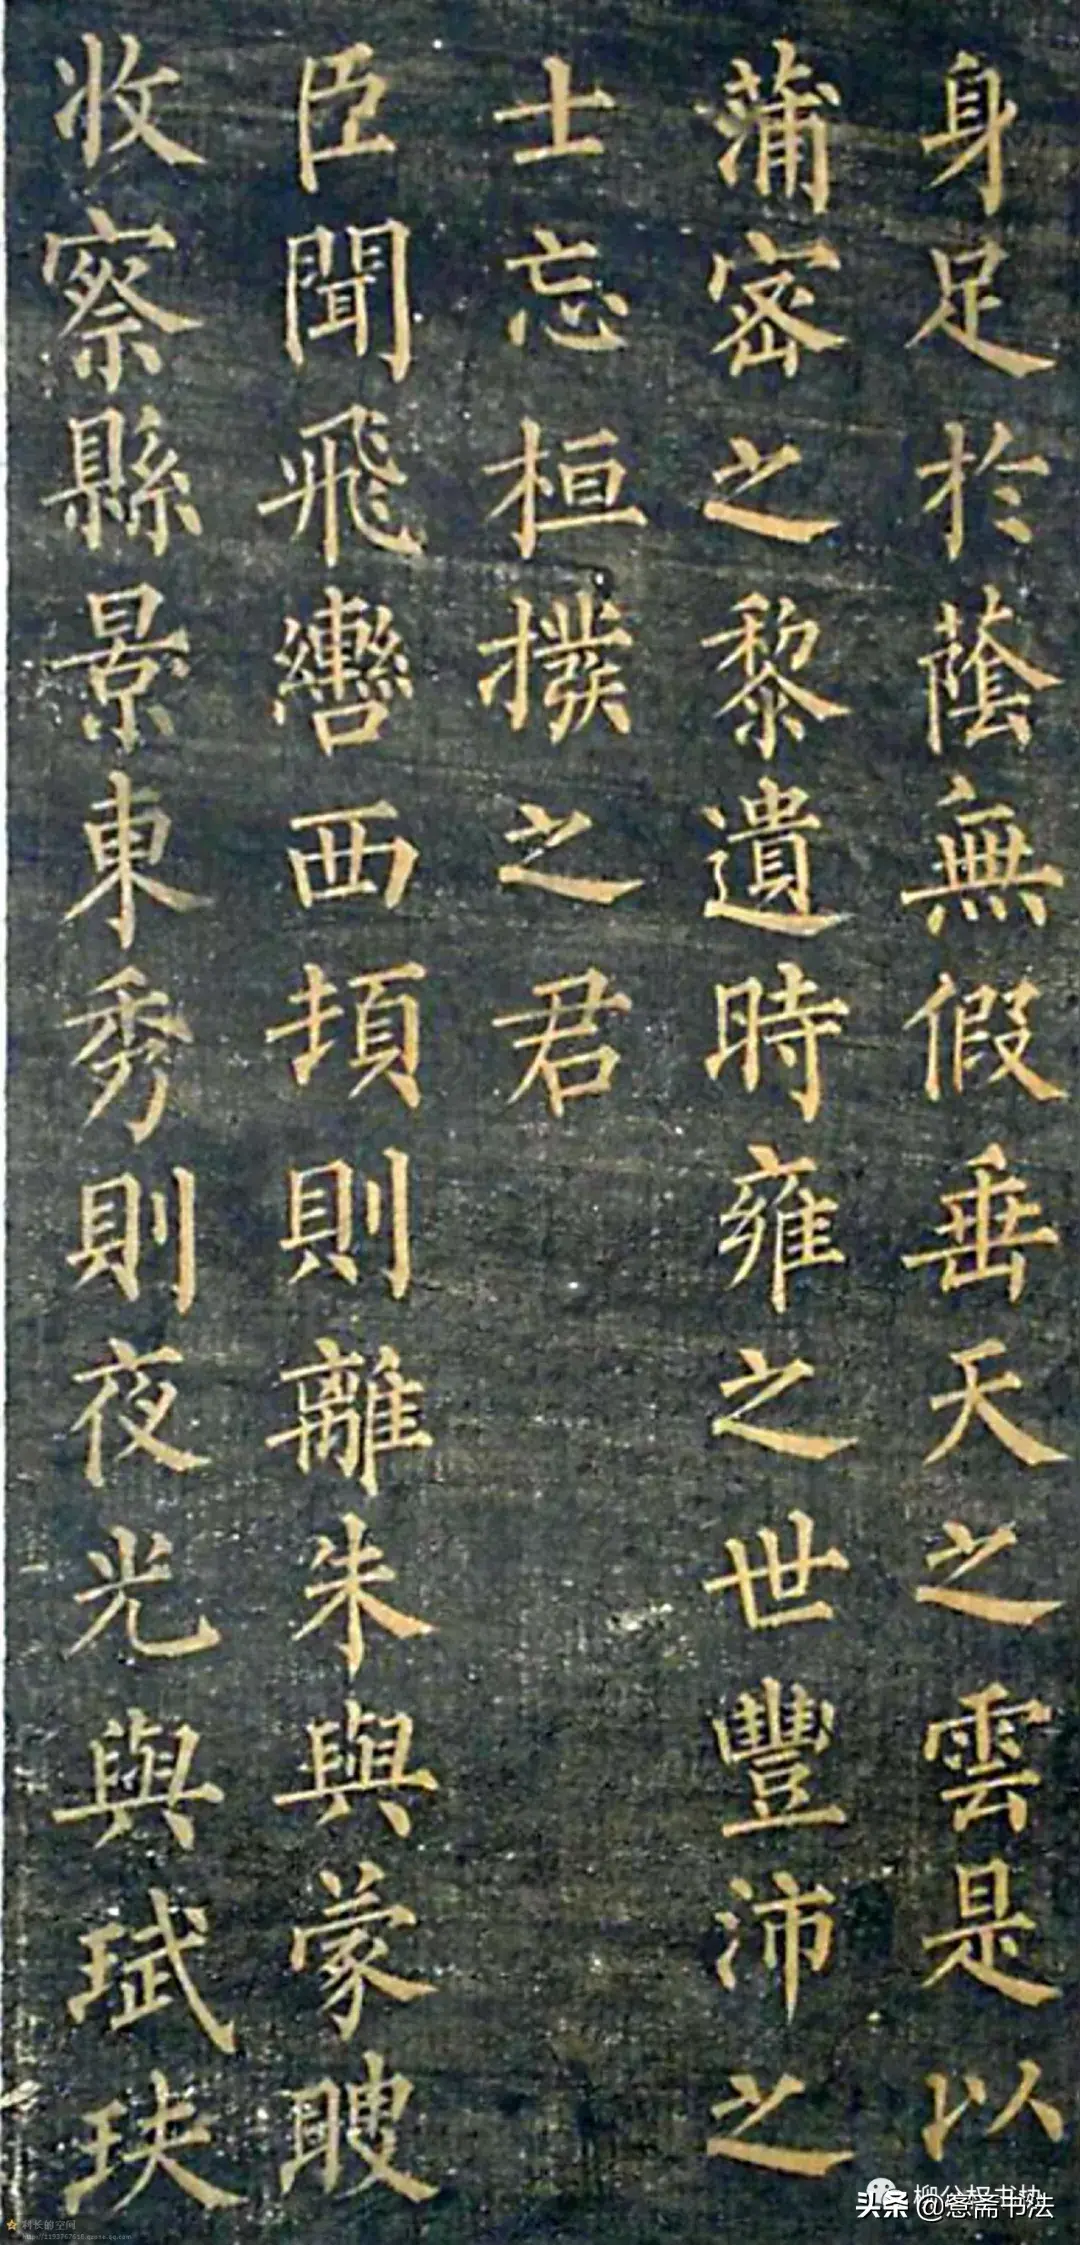 身足於蔭無假垂天之雲是以
蒲密之黎遺時雍之世豐沛之
士忘桓撥之君
臣聞飛轡西頓則離朱與蒙瞍
收察縣景東秀則夜光與珷玞
柳公权书协
头条 @惷斋书法